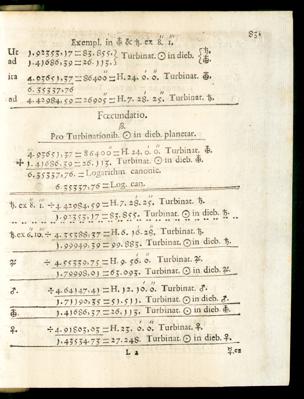 83
Exempl. in ♁ & ♄. ex 8. 1.
Ut 1.92353.17=83.855. } Turbinat. ☉ in dieb. { ♄.
ad 1.41686.39=26.113. } { ♁.
ita 4.93651.37=86400=H.24. 0. 0. Turbinat. ♁.
6.35337.76
ad 4.42984.59=26905=H.7. 28. 25. Turbinat. ♄.
Fœcundatio.
8.
Pro Turbinationib. ☉ in dieb. planetar.
4.93651.37=86400=H.24. 0. 0. Turbinat. ♁.
✢ 1.41686.39=26.113. Turbinat. ☉ in dieb. ♁.
6.35337.76.=Logarithm canonic.
6.35337.76=Log. can.
♄. ex 8. 1. ÷4.42984.59=H.7. 28. 25. Turbinat. ♄.
1.92353.17=83.855. Turbinat. ☉ in dieb. ♄.
♄. ex 6. 10. ÷4.35388.37=H.6. 16. 28. Turbinat. ♄.
1.99949.39=99.883. Turbinat. ☉ in dieb. ♄.
♃. ÷4.55339.75=H.9. 56. 0. Turbinat. ♃.
1.79998.01=63.093. Turbinat. ☉ in dieb. ♃.
♂. ÷4.64147.41=H.12. 10. 0. Turbinat. ♂.
1.71190.35=51.511. Turbinat. ☉ in dieb. ♂.
♁. 1.41686.37=26.113. Turbinat. ☉ in dieb. ♁.
♀. ÷4.91803.03=H.23. 0. 0. Turbinat. ♀.
1.43534.73=27.248. Turbinat. ☉ in dieb. ♀.
L 2
☿. ex